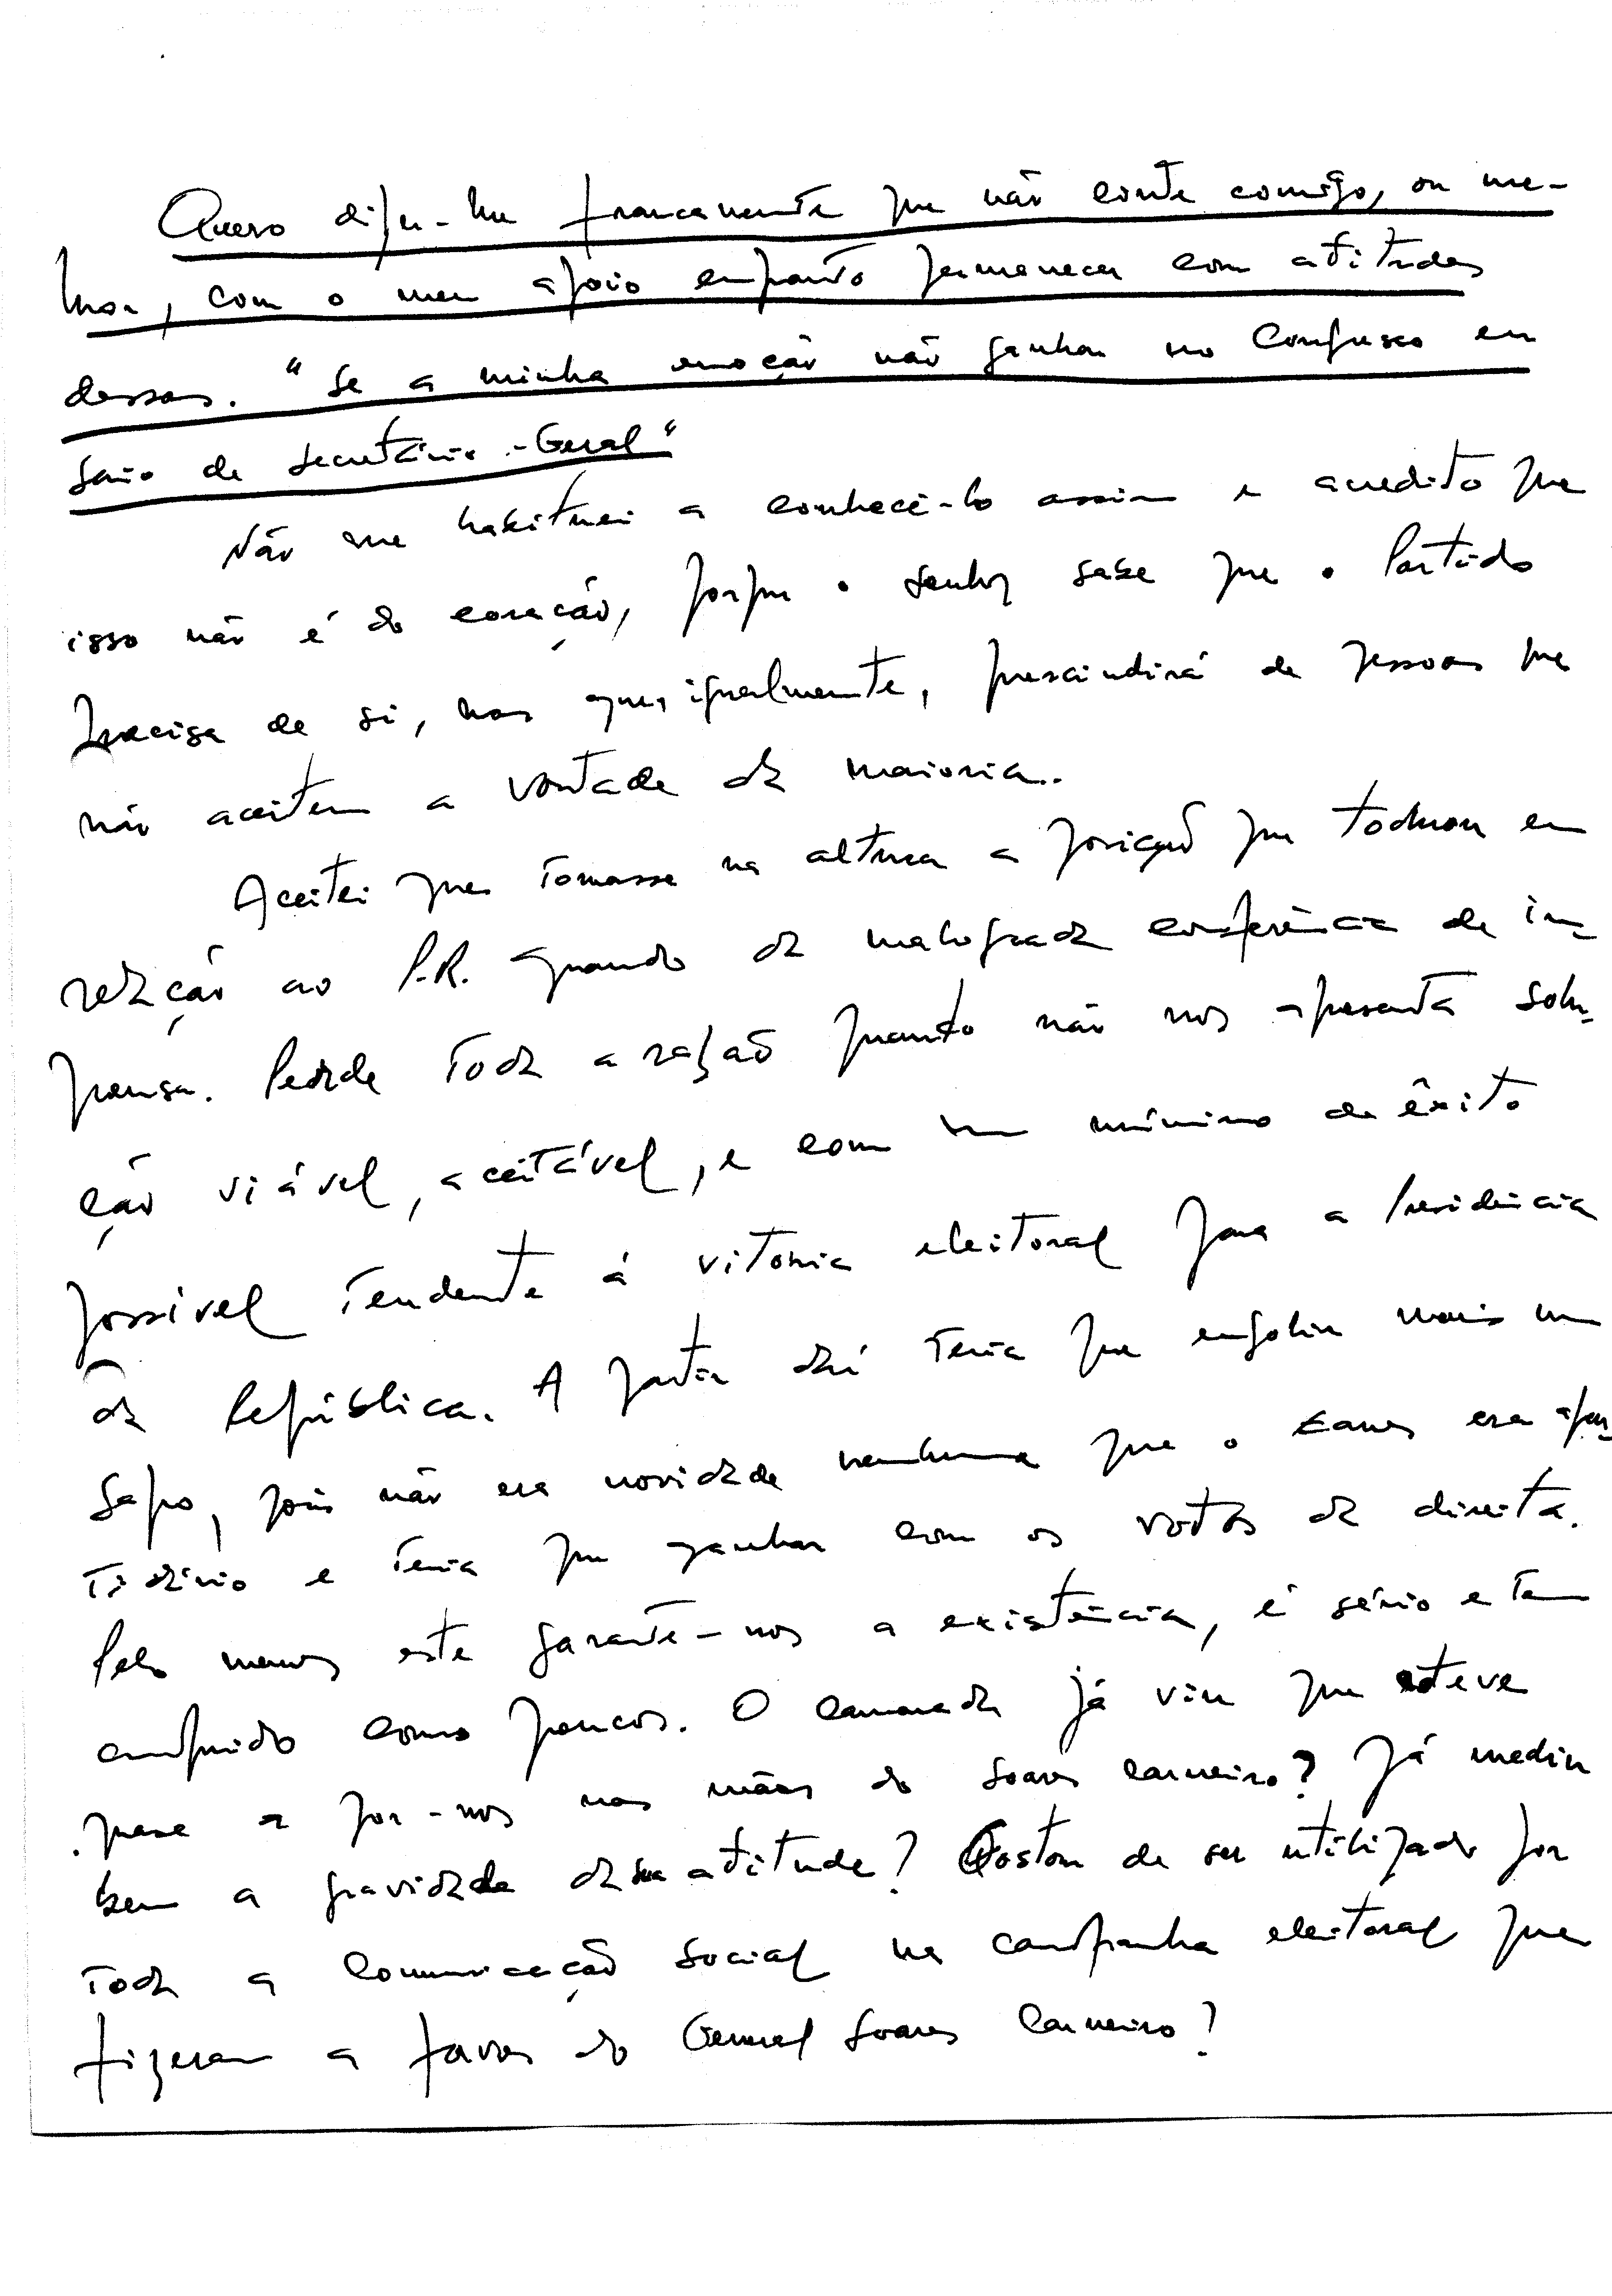 Quero dizer-lhe francamente que não conte comigo, ou me-
lhor, com o meu apoio enquanto permanecer com atitudes
dessas. "Se a minha moção não ganhar no Congresso eu
saio de Secretário-Geral"
Não me habituei a conhecê-lo assim e acredito que
isso não é do coração, porque o senhor sabe que o Partido
precisa de si, mas que, igualmente, prescindirá de pessoas que
não aceitem a vontade da maioria.
Aceitei que tomasse na altura a posição que tomou em
relação ao P.R. quando da malograda conferência de im-
prensa. Perde toda a razão quando não nos apresenta solu-
ção viável, aceitável, e com um mínimo de êxito
possível tendente á vitoria eleitoral para a Presidência
da República. A partir daí teria que engolir mais um
sapo, pois não era novidade nenhuma que o Eanes era apar-
tidário e teria que ganhar com os votos da direita.
Pelo menos este garante-nos a existência, é sério e tem
cumprido como poucos. O camarada já viu que esteve
quase a pôr-nos nas mãos do Soares Carneiro? Já mediu
bem a gravidade da sua atitude? Gostou de ser utilizado por
toda a comunicação social na campanha eleitoral que
fizeram a favor do General Soares Carneiro?